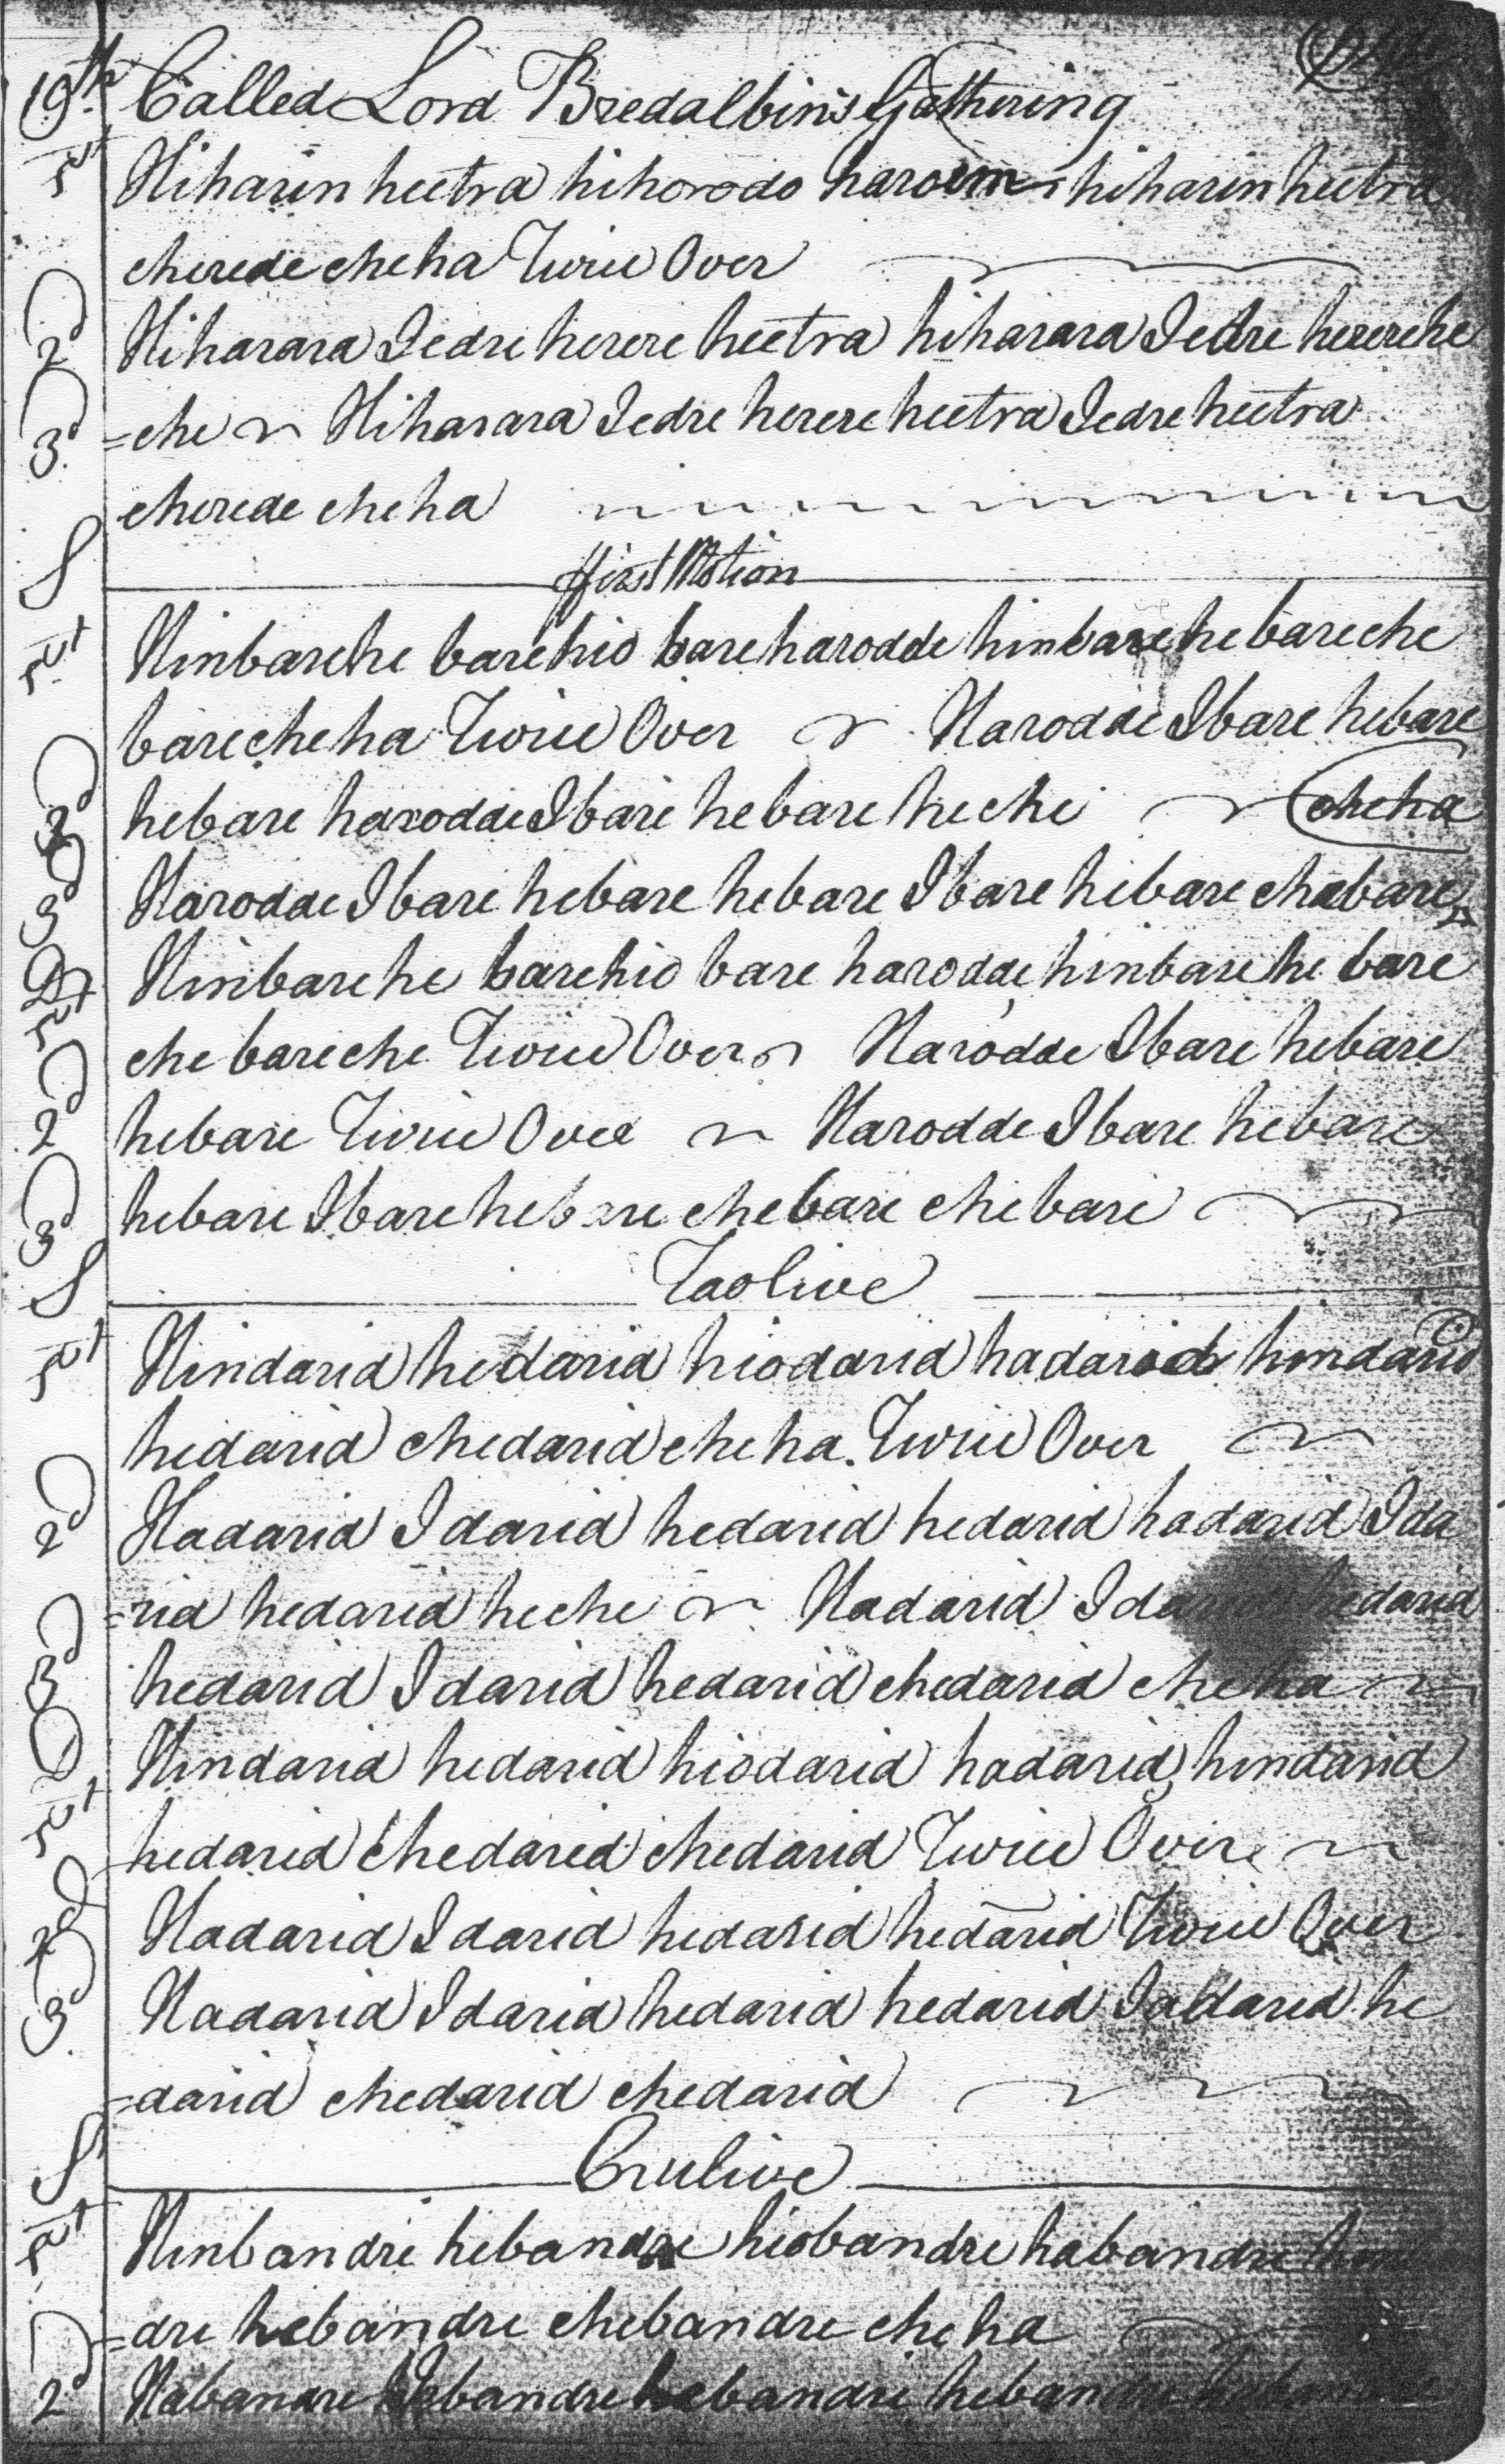 19th Called Lord Bredalbin's Gathering
1st Hiharin heetra hihorodo haroem hiharin heetra
cherede cheha Twice Over
2d Hiharara Jedre herere heetra hiharara Jedre hererehe
3d =che Hiharara Jedre herere heetra Jedre heetra
cherede cheha
S first Motion
1st Hinbarehe barehio bareharodde hinbarehebareche
barecheha Twice Over Harodde Ibare hebare
2d hebare harodde Ibare hebare heche cheha
3d Harodde Ibare hebare hebare Ibare hebare chebare
D 1st Hinbarehe barehio bare harodde hinbarehe bare
che bareche Twice Over Harodde Ibare hebare
2d hebare Twice Over Harodde Ibare hebare
3d hebare Ibare hebare chebare chebare
S Taolive
1st Hindarid hedarid hiodarid hadarid hindarid
hedarid chedarid cheha. Twice Over
2d Hadarid Idarid hedarid hedarid hadarid Ida
=rid hedarid heche Hadarid hedarid
3d hedarid Idarid hedarid chedarid cheha
D 1st Hindarid hedarid hiodarid hadarid, hindarid
hedarid chedarid chedarid Twice Over
2d Hadarid Idarid hedarid hedarid Twice Over
3d Hadarid Idarid hedarid hedarid Iadarid he
=darid chedarid chedarid
S Crulive
1st Hinbandre hebandre hiobandre habandre
=dre hebandre chebandre cheha
2d Habandre Iebandre hebandre